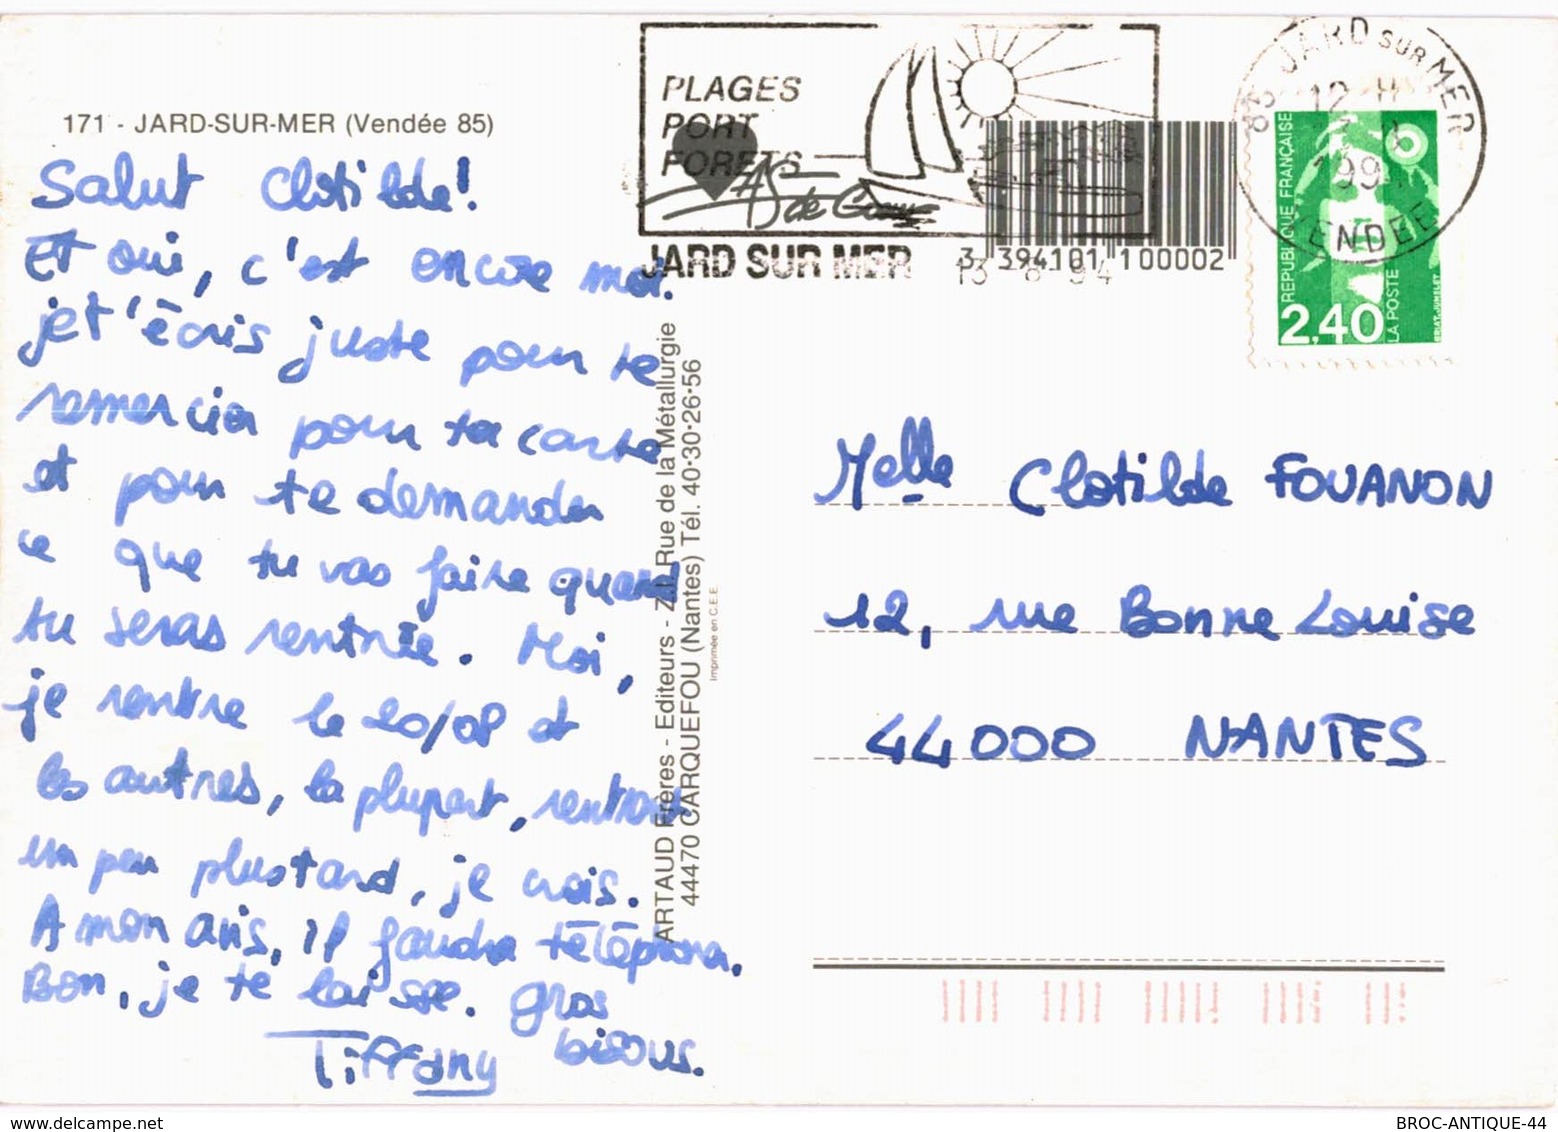 171 - JARD-SUR-MER (Vendée 85)
Salut Clotilde!
Et oui, c'est encore moi.
je t'écris juste pour te
remercier pour ta carte
et pour te demander
ce que tu vas faire quand
tu seras rentrée. Moi,
je rentre le 20/08 et
les autres, la plupart, rentrons
un peu plustard, je crois.
A mon avis, il faudra téléphoner.
Bon, je te laisse. gros
bisous.
Tiffany
ARTAUD Frères - Editeurs - Z.I. Rue de la Métallurgie
44470 CARQUEFOU (Nantes) Tél. 40·30·26·56
Imprimée en C.E.E.
PLAGES
PORT
FORETS
AS de Cœur
JARD SUR MER
13 8 94
3 394101 100002
85 JARD SUR MER
12 H
199
VENDEE
REPUBLIQUE FRANÇAISE
2,40
LA POSTE
BRIAT-JUMELET
Melle Clotilde FOUANON
12, rue Bonne Louise
44000 NANTES
BROC-ANTIQUE-44